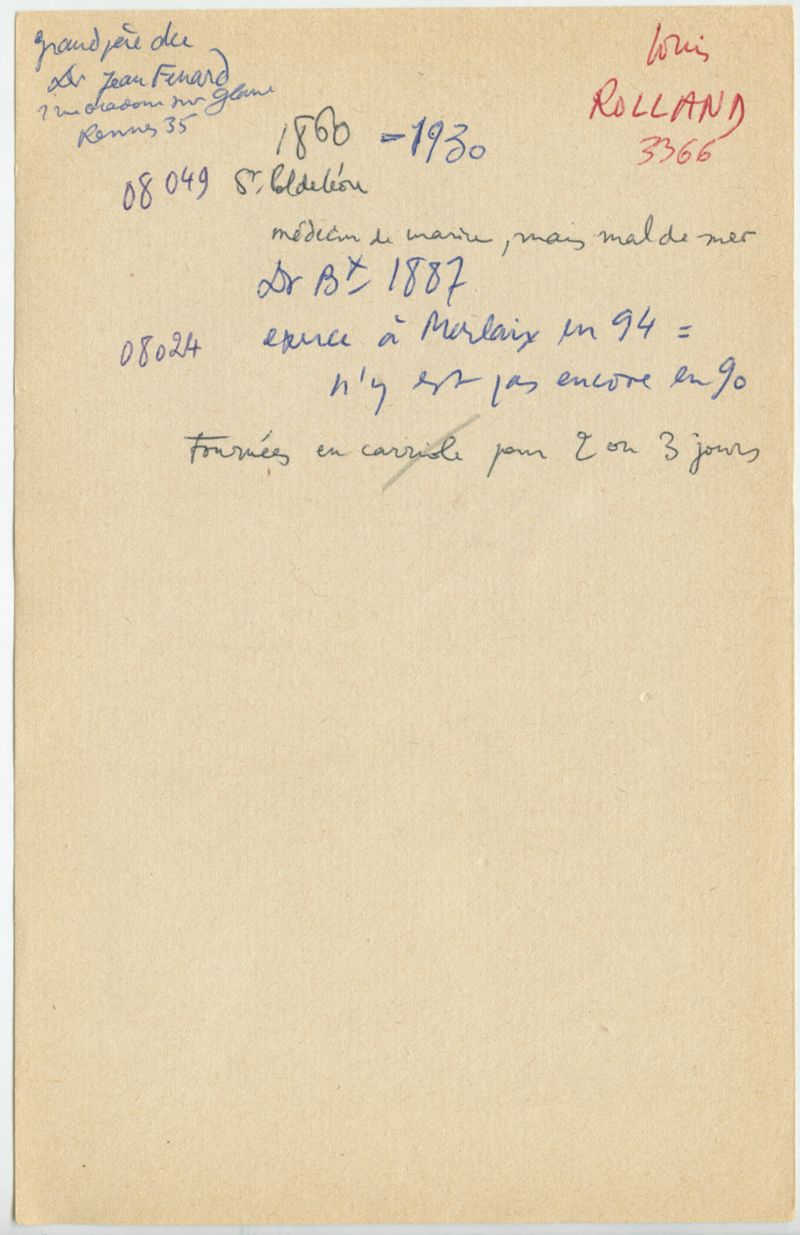 grand père du
Dr Jean Fenard
2 rue oradour sur glane
Rennes 35
Louis
ROLLAND
3366
1860 - 1930
08049 St Pol de Léon
médecin de marine, mais mal de mer
Dr Bx 1887
08024 exerce à Morlaix en 94 =
n'y est pas encore en 90
Tournées en carriole pour 2 ou 3 jours